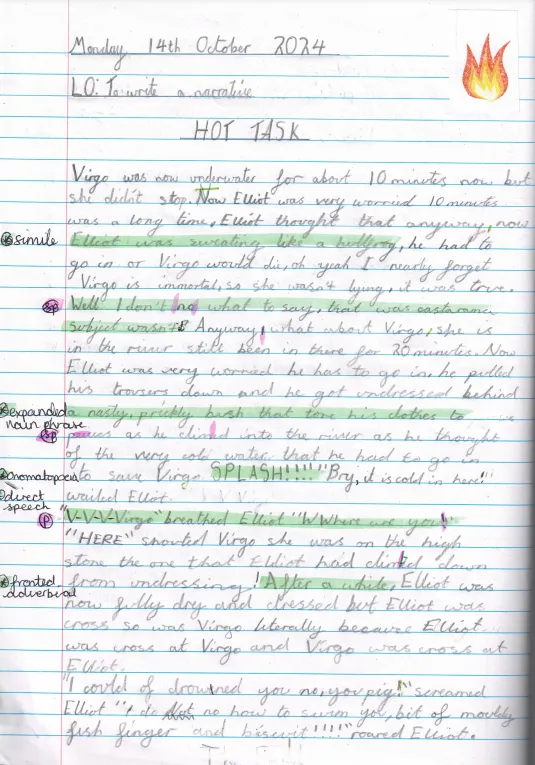 Monday 14th October 2024
LO: To write a narrative
HOT TASK
Virgo was now underwater for about 10 minutes now but
she didn't stop. Now Elliot was very worried 10 minutes
was a long time, Elliot thought that anyway, now
simile Elliot was sweating like a bullfrog, he had to
go in or Virgo would die, oh yeah I nearly forget
Virgo is immortal, so she wasn't lying, it was true.
sp Well I don't no what to say, that was
subject wasn't Anyway, what about Virgo, she is
in the river still been in there for 20 minutes. Now
Elliot was very worried he has to go in, he pulled
his trousers down and he got undressed behind
expanded a nasty, prickly bush that tore his clothes to
noun phrase
sp as he climed into the river as he thought
of the very cold water that he had to go in
onomatopeia to save Virgo SPLASH!!!! "Bry, it is cold in here!"
direct wailed Elliot.
speech "V-V-V-Virgo" breathed Elliot "WWhere are you!
P "HERE" shouted Virgo she was on the high
stone the one that Elliot had climed down
fronted from undressing! After a while, Elliot was
adverbial now fully dry and dressed but Elliot was
cross so was Virgo literally because Elliot
was cross at Virgo and Virgo was cross at
Elliot.
"I could of drowned you no, you pig!" screamed
Elliot "I do Not no how to swim you, bit of mouldy
fish finger and biscuit!!!!" roared Elliot.